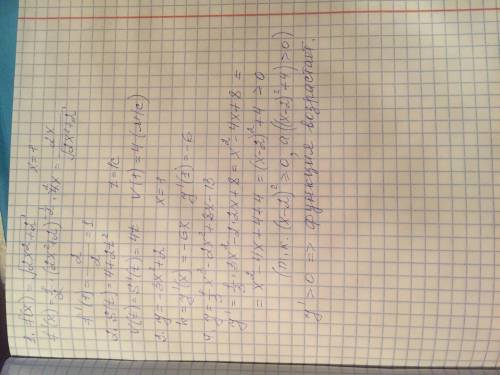 1. f(x) = √(2x²+2)    x=1
f'(x) = 1/2 (2x²+2)^(-1/2) · 4x = 2x/√(2x²+2)
f'(1) = 2/2 = 1
2. S(t) = 4+2t²    t=1c
V(t) = S'(t) = 4t    V(1) = 4 (м/c)
3. y = -3x²+2    x=1
k = y'(x) = -6x    y'(1) = -6
4. y = 1/3 x³ - 2x² + 8x - 13
y' = 1/3 · 3x² - 2·2x + 8 = x² - 4x + 8 =
= x² - 4x + 4 + 4 = (x-2)² + 4 > 0
(т.к. (x-2)² ≥ 0, а ((x-2)²+4) > 0)
y' > 0 => функция возрастает.